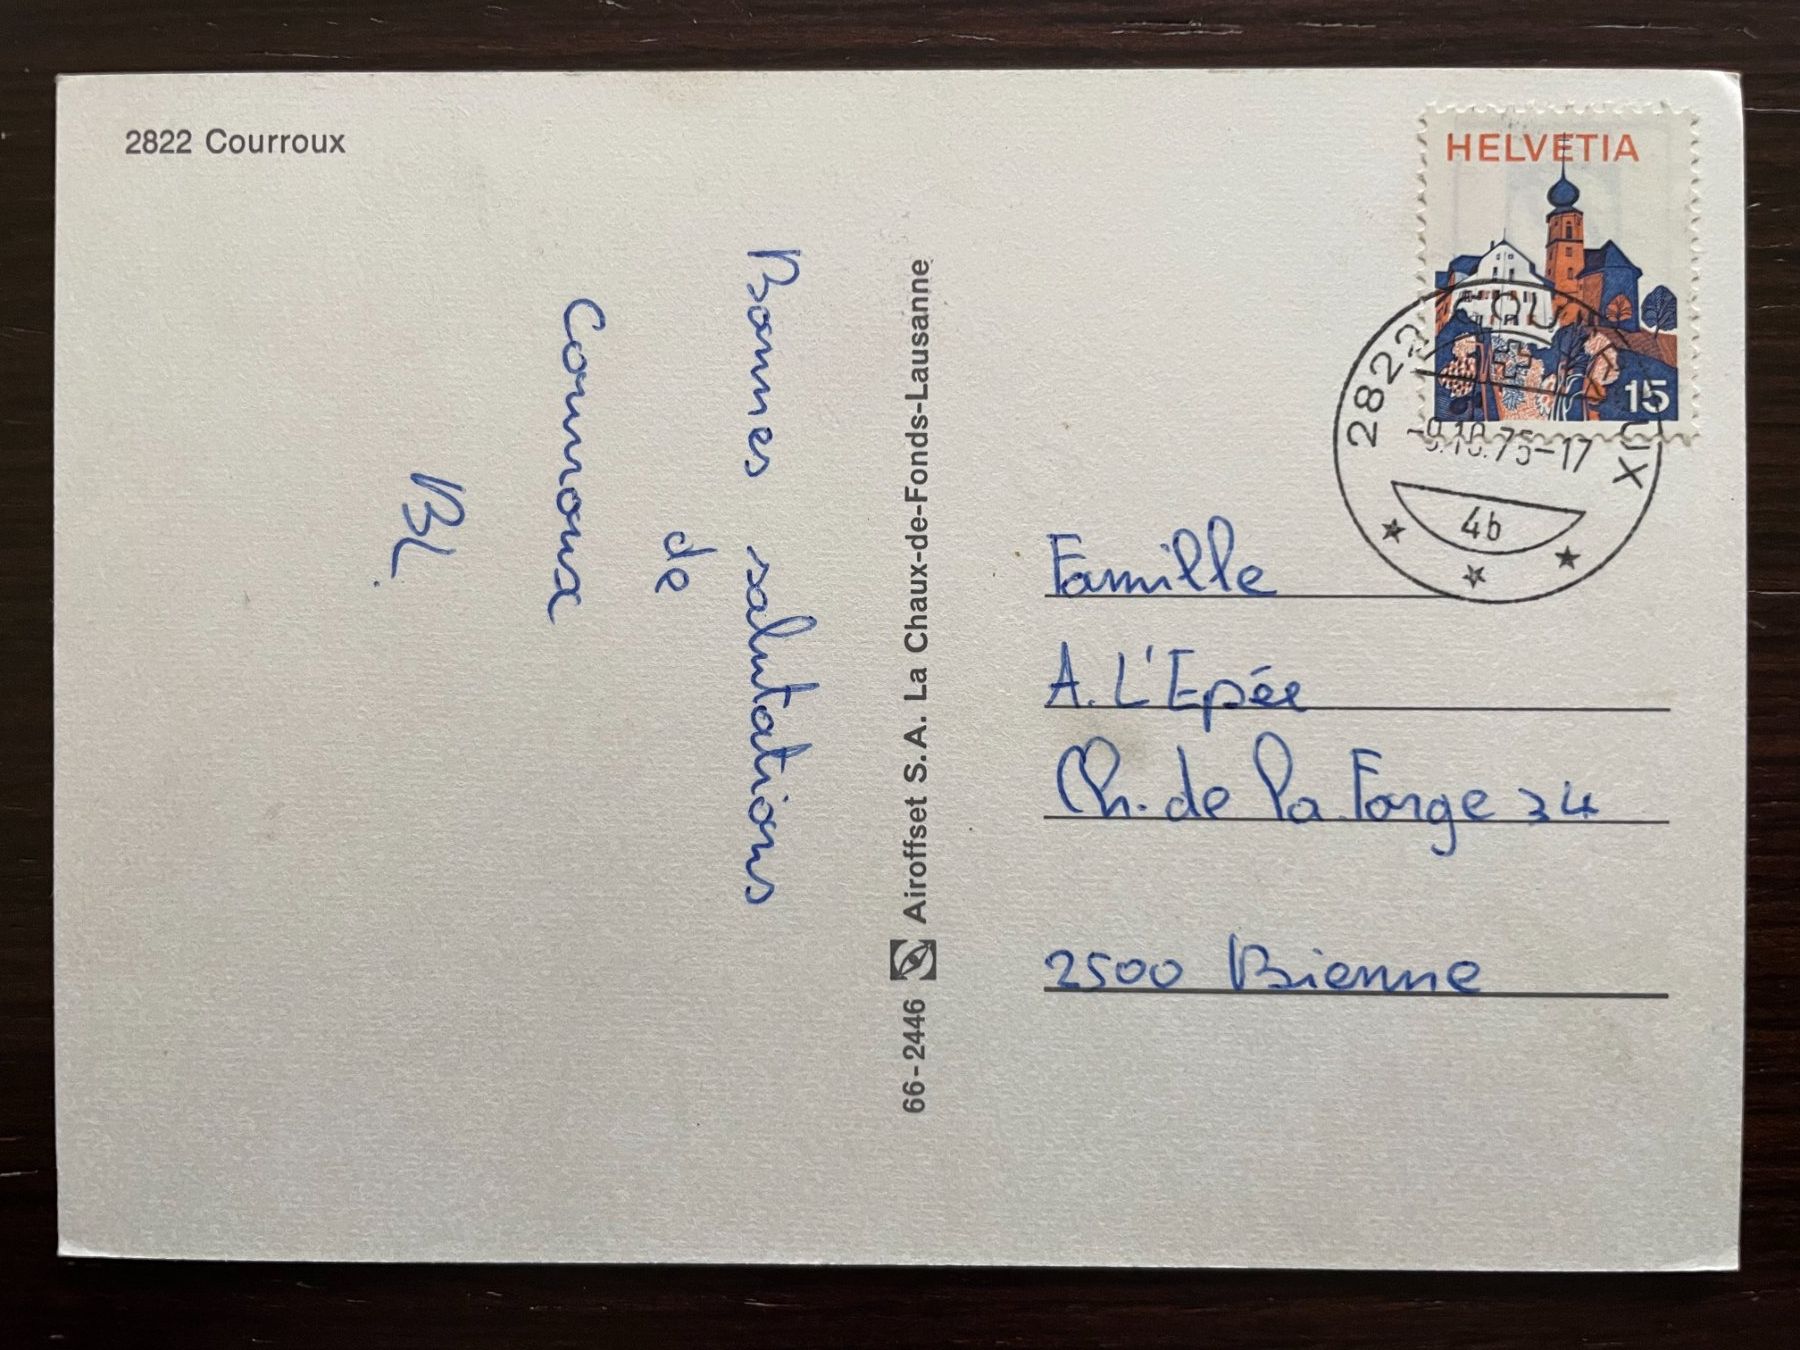 2822 Courroux
Bonnes salutations
de
Courroux
BL.
66-2446 Airoffset S.A. La Chaux-de-Fonds-Lausanne
HELVETIA
15
2822 COURROUX
-9.10.75-17
4b
Famille
A. L'Epée
Ch. de la Forge 34
2500 Bienne